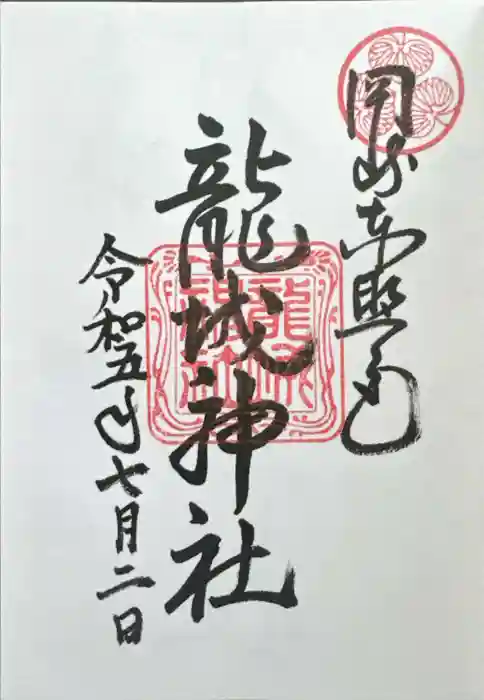 岡崎東照宮
龍城神社
令和五年七月二日
龍城
神社